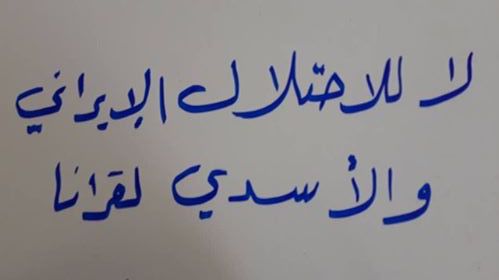 لا للاحتلال الإيراني
والأسدي لقرانا